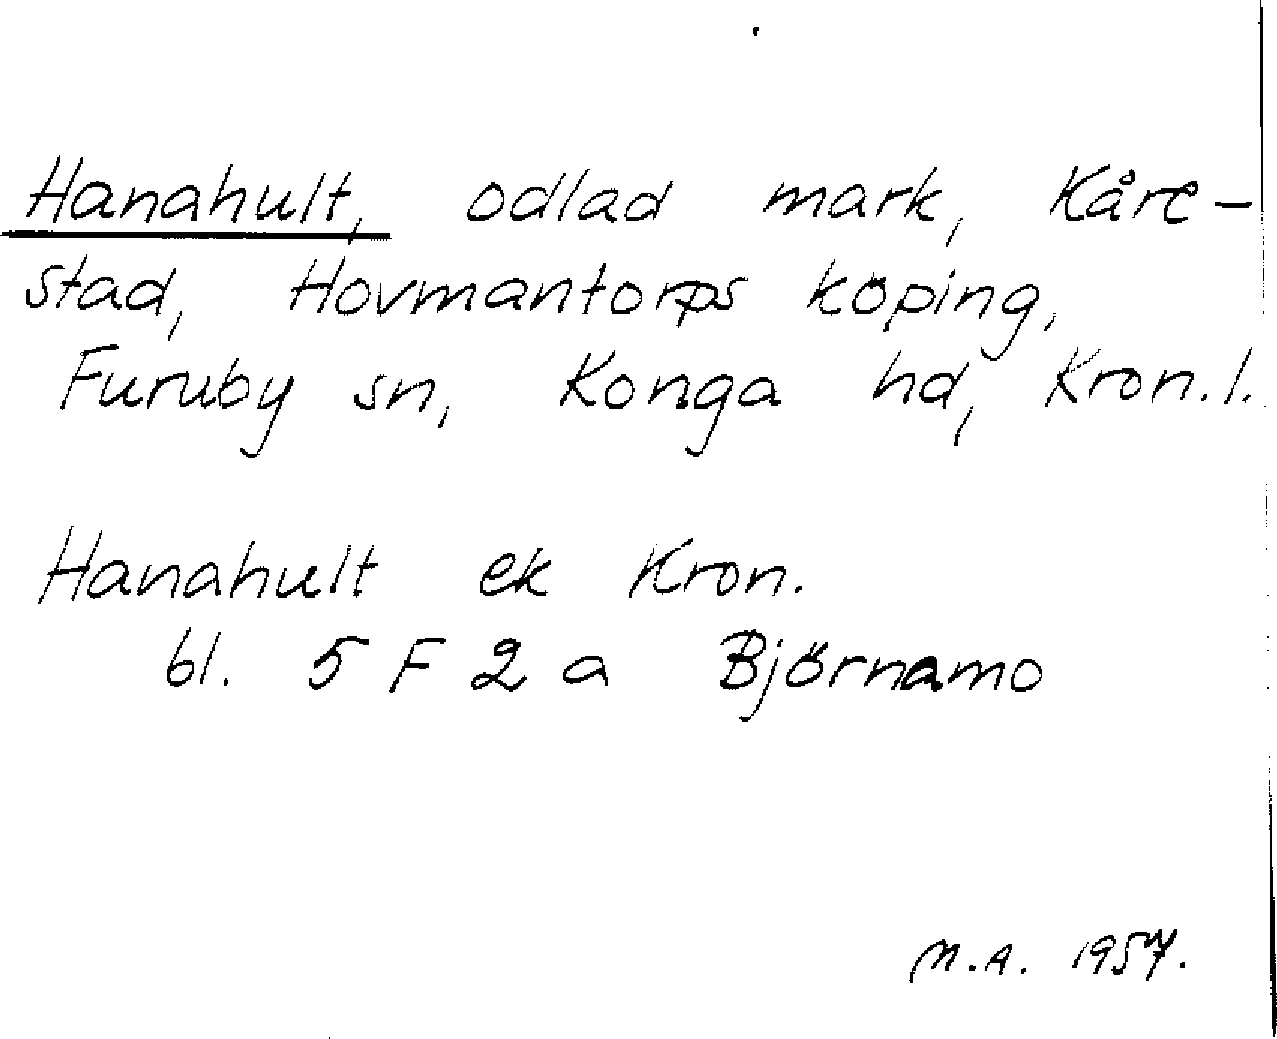 Hanahult, odlad mark, Kåre-
stad, Hovmantorps köping,
Furuby sn, Konga hd, Kron.l.
Hanahult ek Kron.
bl. 5 F 2 a Björnamo
M.A. 1957.